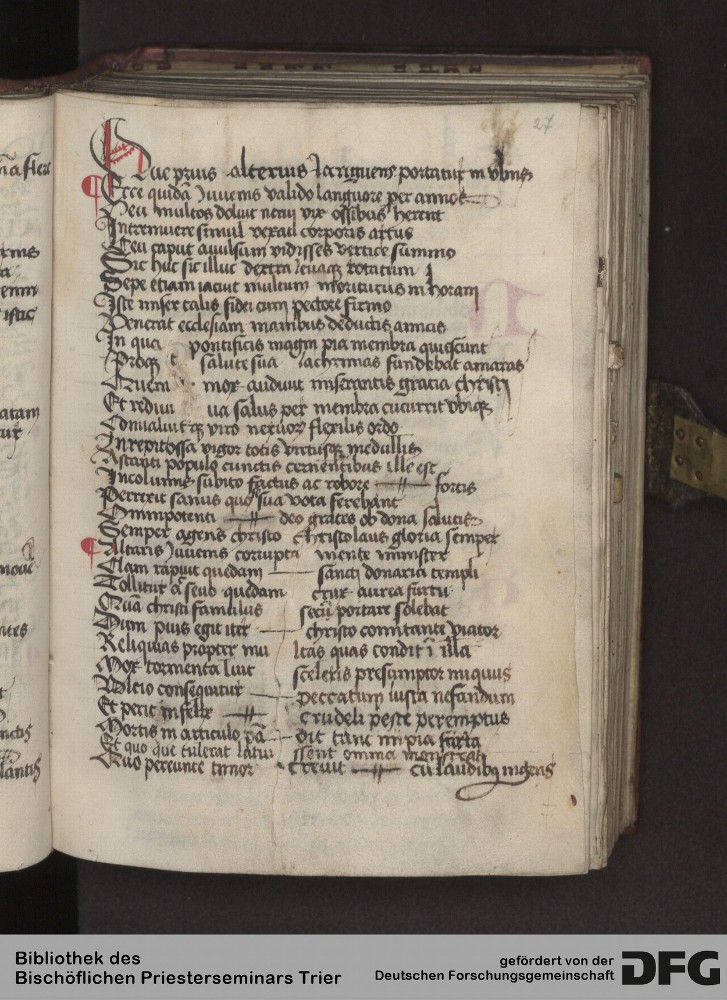 27
Que prius alterius languens portatur in ulnis
Ecce quidā Juuenis valido languore per annos
Heu multos doluit neruj vix ossibus herent
Intremuere simul vexati corporis artus
Ceu caput auulsum vidisses vertice summo
Sic huc sic illuc dextra leuaqꝫ rotatum
Sepe etiam iacuit multum moriturus in horam
Iste miser talis fidei cum pectore firmo
Venerat ecclesiam manibus deductus amicis
In qua pontificis magni pia membra quiescunt
Proqꝫ salute sua lachrimas fundebat amaras
Quem mox audiuit miserantis gracia christi
Et rediui ua salus per membra cucurrit vbiqꝫ
Conualuitqꝫ viro nexuoꝝ flexilis ordo
Inrepit ossa vigor totis virtusqꝫ medullis
Astanti populo cunctis cernentibus ille est
Incolumis subito factus ac robore fortis
Perrexit sanus quo sua vota ferebant
Omnipotenti deo grates ob dona salutis
Semper agens christo christo laus gloria semper
Altaris Juuenis corrupta mente minister
Clam rapuit quedam sancti donaria templi
Tollitur a seub quedam crux aurea furtu
Quā christi famulus secū portare solebat
Dum pius egit iter christo comitante viator
Reliquias propter mu ltas quas condit ī illa
Mox tormenta luit sceleris presumptor iniquus
Vlcio consequitur peccatum iusta nefandum
Et perit infelix crudeli peste peremptus
Mortis in articulo pā dit tunc impia furta
Et quo que tulerat latui ssent omnia monstrat
Quo pereunte timor creuit cū laudibꝫ ingens
Bibliothek des
Bischöflichen Priesterseminars Trier
gefördert von der
Deutschen Forschungsgemeinschaft
DFG